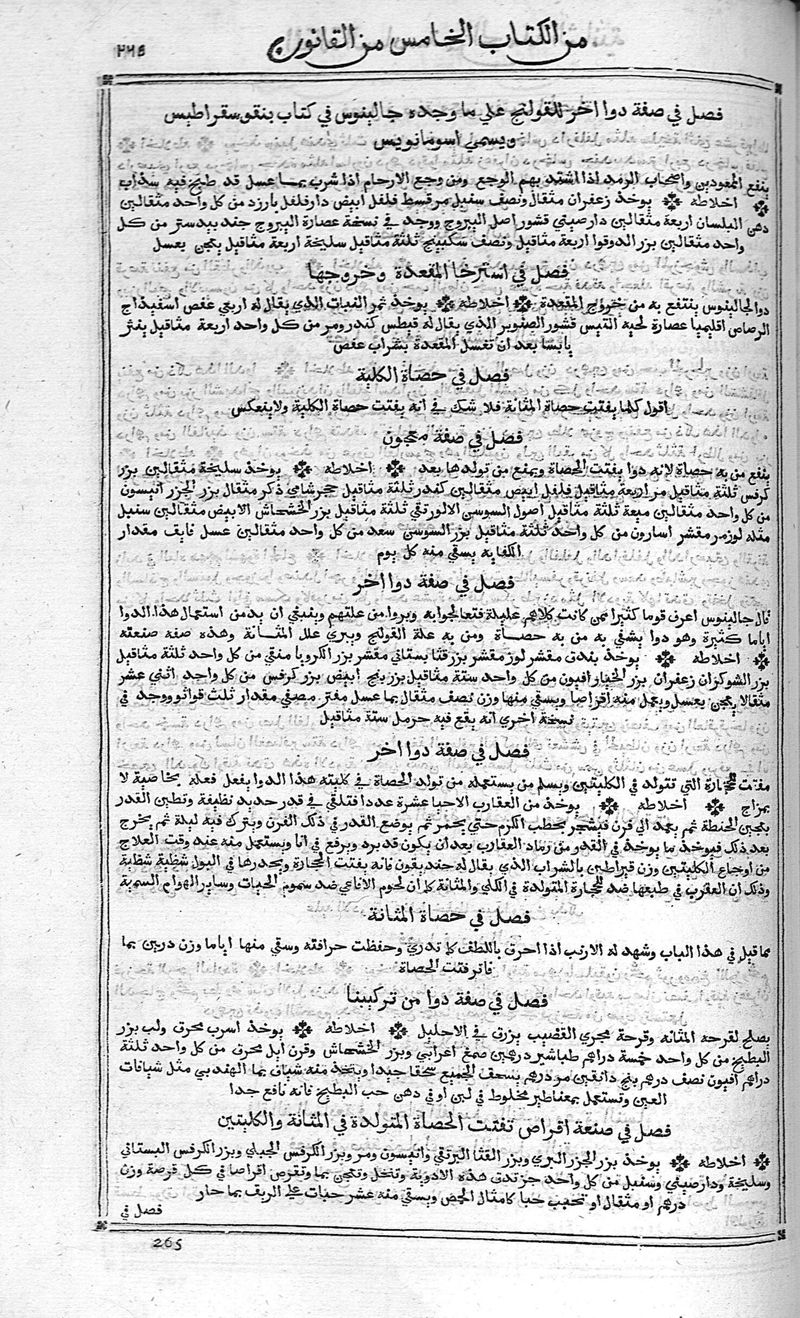 من الكتاب الخامس من القانون
٢٦٥
فصل في صفة دوا اخر للقولنج علي ما وجده جالينوس في كتاب بنقوسقراطيس
ويسمي اسومانويس
ينفع المفودين واصحاب الرمد اذا اشتد بهم الوجع ومن وجع الارحام اذا شرب بما عسل قد طبخ فيه سذاب
اخلاطه يوخذ زعفران مثقال ونصف سنبل مر قسط فلفل ابيض دارفلفل بارزد من كل واحد مثقالين
دهن البلسان اربعة مثقالين دارصيني قشور اصل اليبروح ووجد في نسخة عصارة اليبروح جند بيدستر من كل
واحد مثقالين بزر الدوقوا اربعة مثاقيل ونصف سكبينج ثلثة مثاقيل سليخة اربعة مثاقيل يعجن بعسل
فصل في استرخا المقعدة وخروجها
دوا لجالينوس ينتفع به من خروج المقعدة اخلاطه يوخذ ثمر النبات الذي يقال له اربعي عفص اسفيداج
الرصاص اقليميا عصارة لحية التيس قشور الصنوبر الذي يقال له قيطس كندر ومر من كل واحد اربعة مثاقيل ينثر
يابسا بعد ان تغسل المقعدة بشراب عفص
فصل في حصاة الكلية
اقول كلما يفتت حصاة المثانة فلا شك في انه يفتت حصاة الكلية ولا ينعكس
فصل في صفة معجون
ينفع من به حصاة لانه دوا يفتت الحصاة ويمنع من تولدها بعد اخلاطه يوخذ سليخة مثقالين بزر
كرفس ثلثة مثاقيل مر اربعة مثاقيل فلفل ابيض مثقالين كندر ثلثة مثاقيل حجر شامي ذكر مثقال بزر الجزر انيسون
من كل واحد مثقالين ميعة ثلثة مثاقيل اصول السوسن الالورتني ثلثة مثاقيل بزر الخشخاش الابيض مثقالين سنبل
مثله لوز مر مقشر اسارون من كل واحد ثلثة مثاقيل بزر السوسن سعد من كل واحد مثقالين عسل فايق مقدار
الكفاية يسقي منه كل يوم
فصل في صفة دوا اخر
قال جالينوس اعرف قوما كثيرا ممن كانت كلاهم عليلة فتعالجوا به وبروا من علتهم وينبغي ان يدمن استعمال هذا الدوا
اياما كثيرة وهو دوا يشفي به من به حصاة ومن به علة القولنج ويبري علل المثانة وهذه صفة صنعته
اخلاطه يوخذ بندق مقشر لوز مقشر بزر قثا بستاني مقشر بزر الكرويا منقي من كل واحد ثلثة مثاقيل
بزر الشوكران زعفران بزر الخيار افيون من كل واحد ستة مثاقيل بزر بنج ابيض بزر كرفس من كل واحد اثني عشر
مثقالا يعجن بعسل ويعمل منه اقراصا ويسقي منها وزن نصف مثقال بما عسل مفتر مصفي مقدار ثلث قواثو ووجد في
نسخة اخري انه يقع فيه حرمل ستة مثاقيل
فصل في صفة دوا اخر
مفتت للحجارة التي تتولد في الكليتين ويسلم من يستعمله من تولد الحصاة في كليته هذا الدوا يفعل فعله بخاصية لا
بمزاج اخلاطه يوخذ من العقارب الاحيا عشرة عددا فتلقي في قدر حديد نظيفة وتطين القدر
بعجين الحنطة ثم يعمد الي فرن فيسجر بحطب الكرم حتي يحمر ثم يوضع القدر في ذلك الفرن ويترك فيه ليلة ثم يخرج
بعد ذلك فيوخذ ما يوخذ في القدر من رماد العقارب بعد ان يكون قد برد ويرفع في انا ويستعمل منه عند وقت العلاج
من اوجاع الكليتين وزن قيراطين بالشراب الذي يقال له خنديقون فانه يفتت الحجارة ويحدرها في البول شظية شظية
وذلك ان العقرب في طبعها ضد للحجارة المتولدة في الكلي والمثانة كما ان لحوم الافاعي ضد سموم الحيات وساير الهوام السمية
فصل في حصاة المثانة
مما قيل في هذا الباب وشهد له الارنب اذا احرق باللطف كما تدري وحفظت حرافته وسقي منها اياما وزن درهمين بما
فاتر فتت الحصاة
فصل في صفة دوا من تركيبنا
يصلح لقرحه المثانه وقرحة مجري القضيب يزرق في الاحليل اخلاطه يوخذ اسرب محرق ولب بزر
البطيخ من كل واحد خمسة دراهم طباشير درهمين صمغ اعرابي وبزر الخشخاش وقرن ايل محرق من كل واحد ثلثة
دراهم افيون نصف درهم بنج دانقين مر درهم يسحق الجميع سحقا جيدا ويتخذ منه شياف بما الهندبي مثل شيافات
العين وتستعمل بمغناطير مخلوط في لبن او في دهن حب البطيخ فانه نافع جدا
فصل في صنعة اقراص تفتت الحصاة المتولدة في المثانة والكليتين
اخلاطه يوخذ بزر الجزر البري وبزر القثا البرتقي وانيسون ومر وبزر الكرفس الجبلي وبزر الكرفس البستاني
وسليخة ودارصيني وسنبل من كل واحد جز تدق هذه الادوية وتنخل وتعجن بما وتقرص اقراصا في كل قرصة وزن
درهم او مثقال او تحبب حبا كامثال الحمص ويسقي منه عشر حبات علي الريق بما حار
فصل في
265